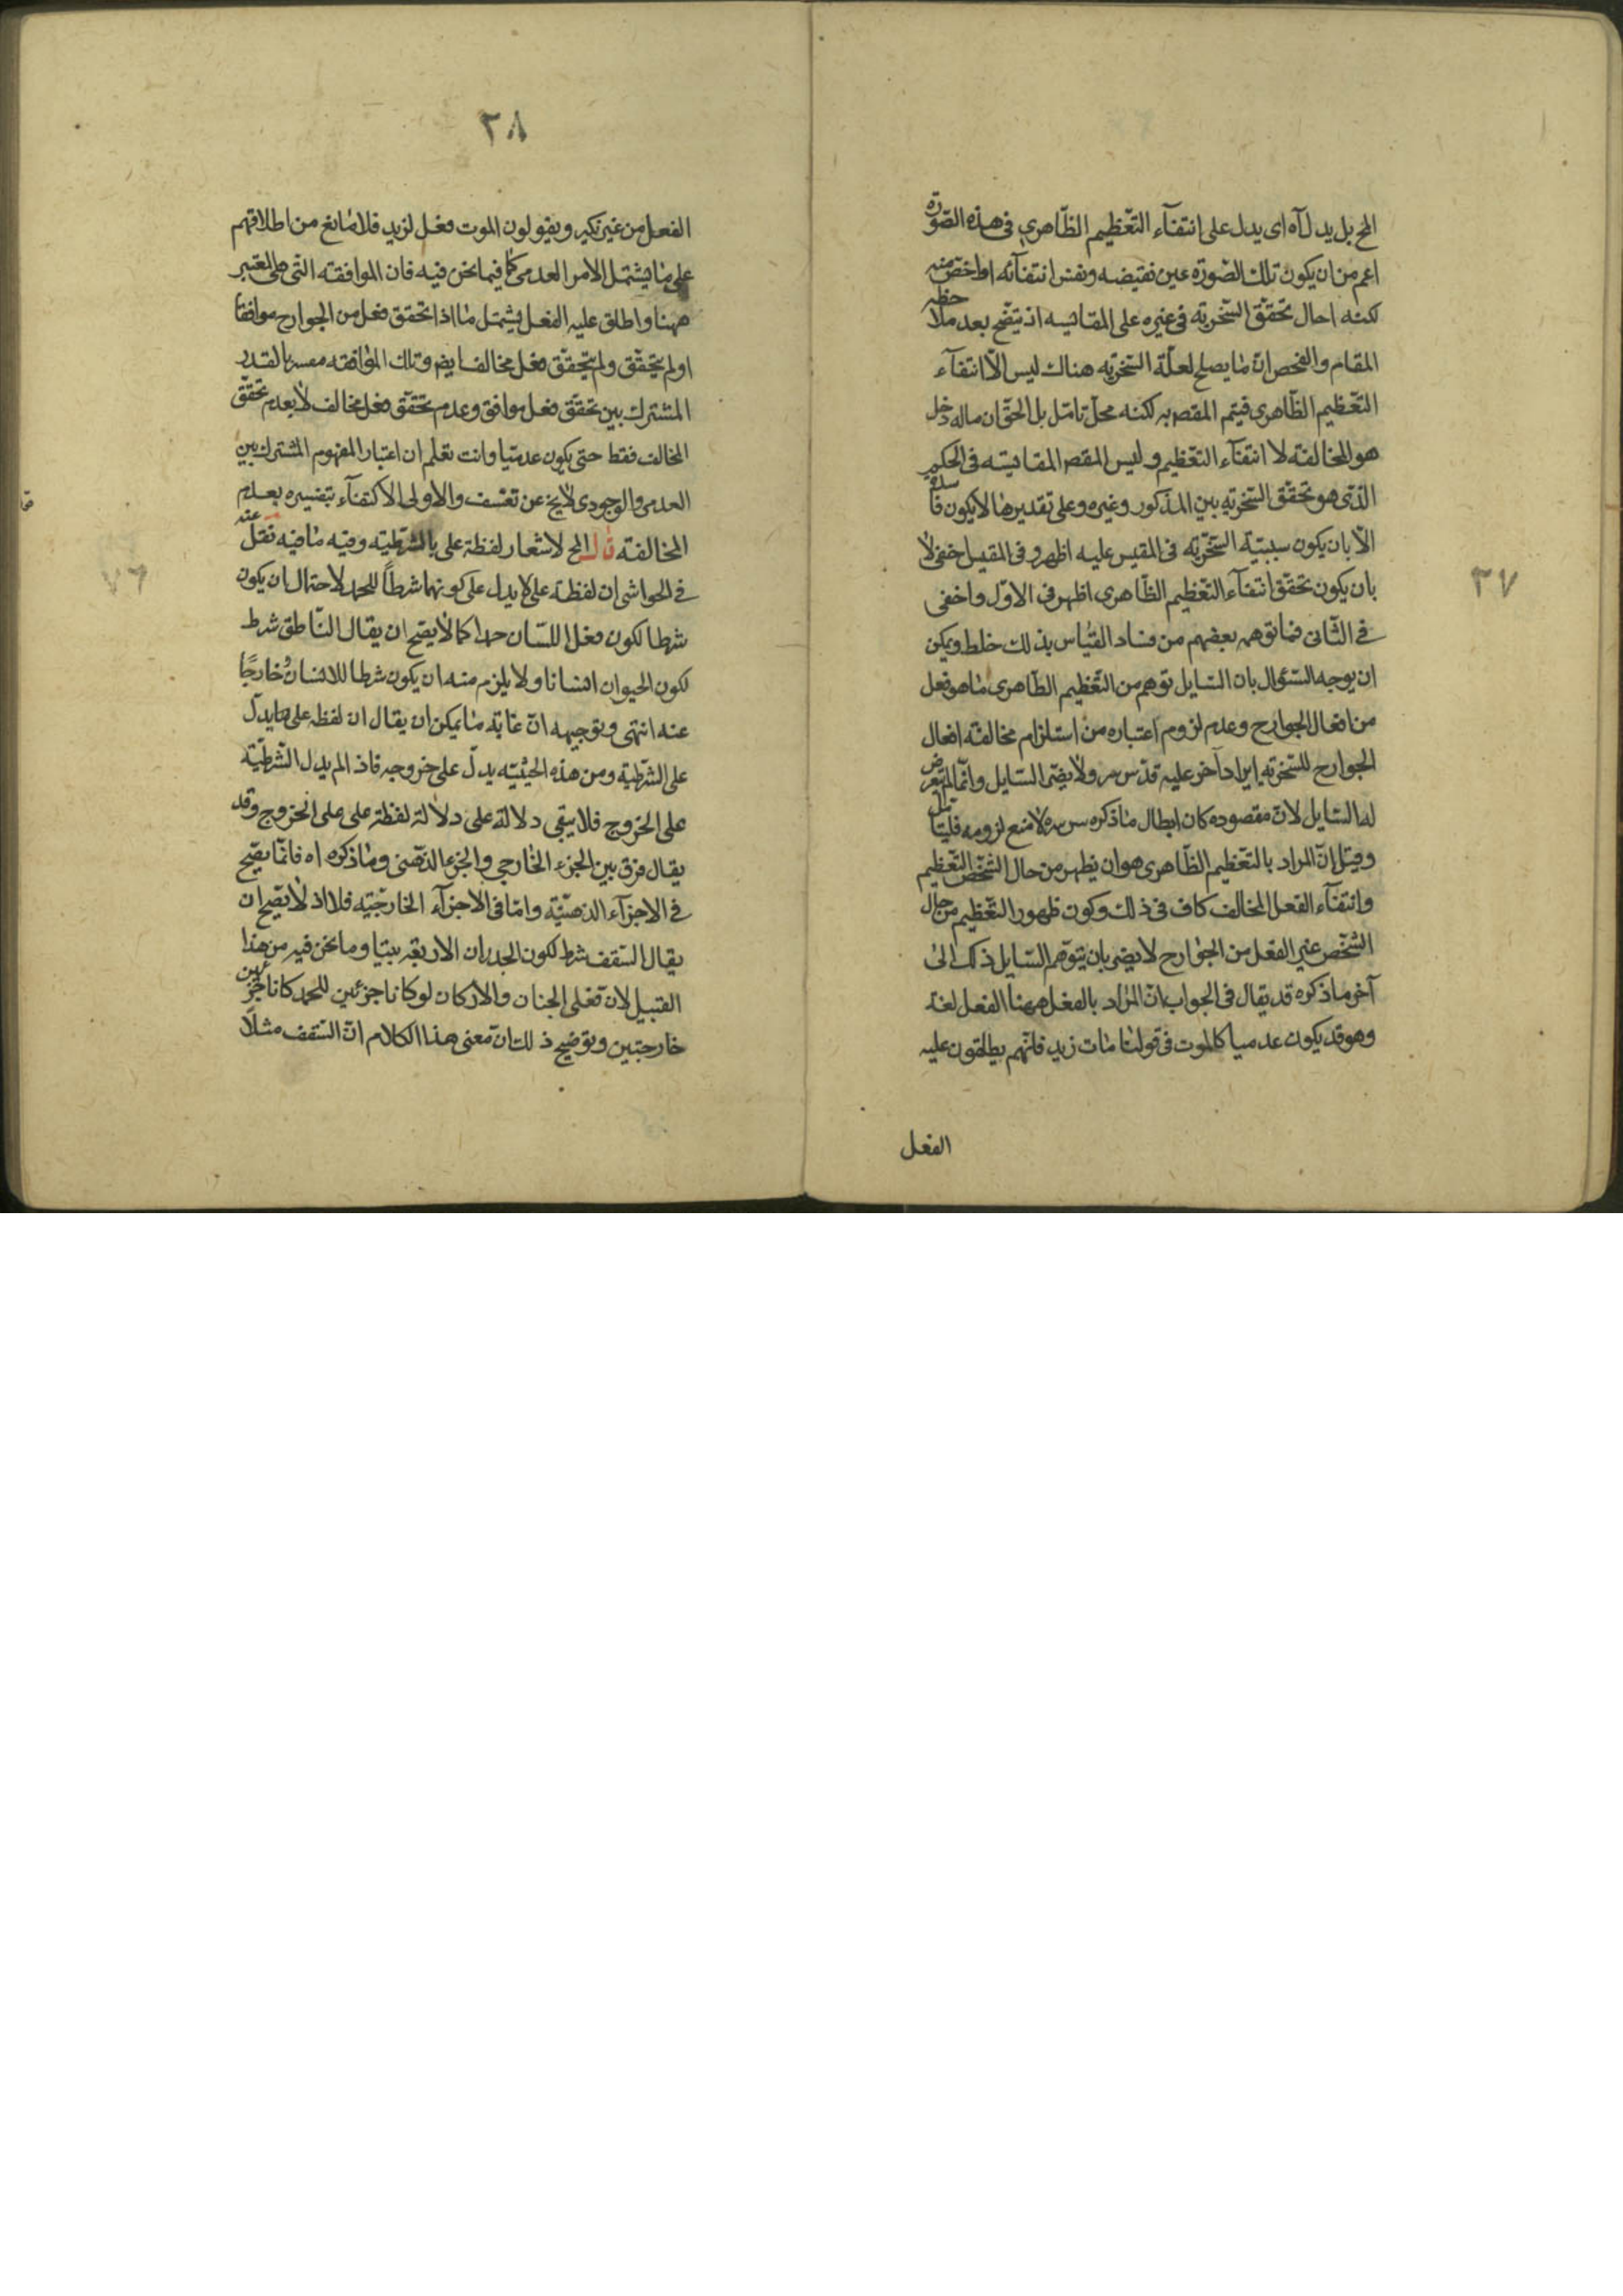 ٣٧
الخ بل يدل آه اى يدل على انتفآء التعظيم الظاهرى فى هذه الصورة
اعم من ان يكون تلك الصورة عين نقيضه ونفس انتفآئه او اخص منه
لكنه احال تحقق السخرية فى غيره على المقايسه اذ يتضح بعد ملاحظه
المقام والفحص ان ما يصلح لعلة السخريه هناك ليس الا انتفآء
التعظيم الظاهرى فيتم المقصم به لكنه محل تامل بل الحق ان ماله دخل
هو المخالفة لا انتفآء التعظيم وليس المقصم المقايسه فى الحكم
الذى هو تحقق السخريه بين المذكور وغيره وعلى تقديرها لا يكون فاسدة
الا بان يكون سببية السخريه فى المقيس عليه اظهر وفى المقيس اخفى لا
بان يكون تحقق انتفآء التعظيم الظاهرى اظهر فى الاول واخفى
فى الثانى فما توهمه بعضهم من فساد القياس بذلك خلط ويمكن
ان يوجه السئوال بان السايل توهم من التعظيم الظاهرى ما هو فعل
من افعال الجوارح وعدم لزوم اعتباره من استلزام مخالفة افعال
الجوارح للسخريه ايراد آخر عليه قدس سره ولا يضر السايل وانما لم يتعرض
له السايل لان مقصوده كان ابطال ما ذكره سره لا منع لزومه فليتامل
وقيل ان المراد بالتعظيم الظاهرى هو ان يظهر من حال الشخص التعظيم
وانتفآء الفعل المخالف كاف فى ذلك وكون ظهور التعظيم من حال
الشخص غير الفعل من الجوارح لا يضر بان يتوهم السايل ذلك الى
آخر ما ذكره قد يقال فى الجواب ان المراد بالفعل ههنا الفعل لغة
وهو قد يكون عدميا كالموت فى قولنا مات زيد فانهم يطلقون عليه
الفعل
٣٨
الفعل من غير نكير ويقولون الموت فعل لزيد فلا مانع من اطلاقهم
على ما يشتمل الامر العدمى كما فيما نحن فيه فان الموافقة التى هى المعتبر
ههنا واطلق عليه الفعل يشتمل ما اذا تحقق فعل من الجوارح موافقا
او لم يتحقق ولم يتحقق فعل مخالف ايضم وتلك الموافقه مفسر بالقدر
المشترك بين تحقق فعل موافق وعدم تحقق فعل مخالف لا بعدم تحقق
المخالف فقط حتى يكون عدميا وانت تعلم ان اعتبار المفهوم المشترك بين
العدمى والوجودى لا يخ عن تعسف والاولى الاكتفآء بتفسيره بعدم
المخالفة قال الخ لاشعار لفظة على بالشرطية وفيه ما فيه نقل عنه
فى الحواشى ان لفظة على لا يدل على كونهما شرطاً للحمد لاحتمال ان يكون
شرطا لكون فعل اللسان حمدا كما لا يصح ان يقال الناطق شرط
لكون الحيوان انسانا ولا يلزم منه ان يكون شرطا للانسان وخارجًا
عنه انتهى وتوجيهه ان غاية ما يمكن ان يقال ان لفظه على ما يدل
على الشرطية ومن هذه الحيثيه يدل على خروجه فاذ الم يدل الشرطية
على الخروج فلا يبقى دلالة على دلالة لفظة على على الخروج وقد
يقال فرق بين الجزء الخارجى والجزء الذهنى وما ذكره اه فانما يصح
فى الاجزآء الذهنية واما فى الاجزآء الخارجيه فلا اذ لا يصح ان
يقال السقف شرط لكون الجدران الاربعة بيتا وما نحن فيه من هذا
القبيل لان فعلى الجنان والاركان لو كانا جزئين للحمد كانا جزئين
خارجيين وتوضيح ذلك ان معنى هذا الكلام ان السقف مثلًا